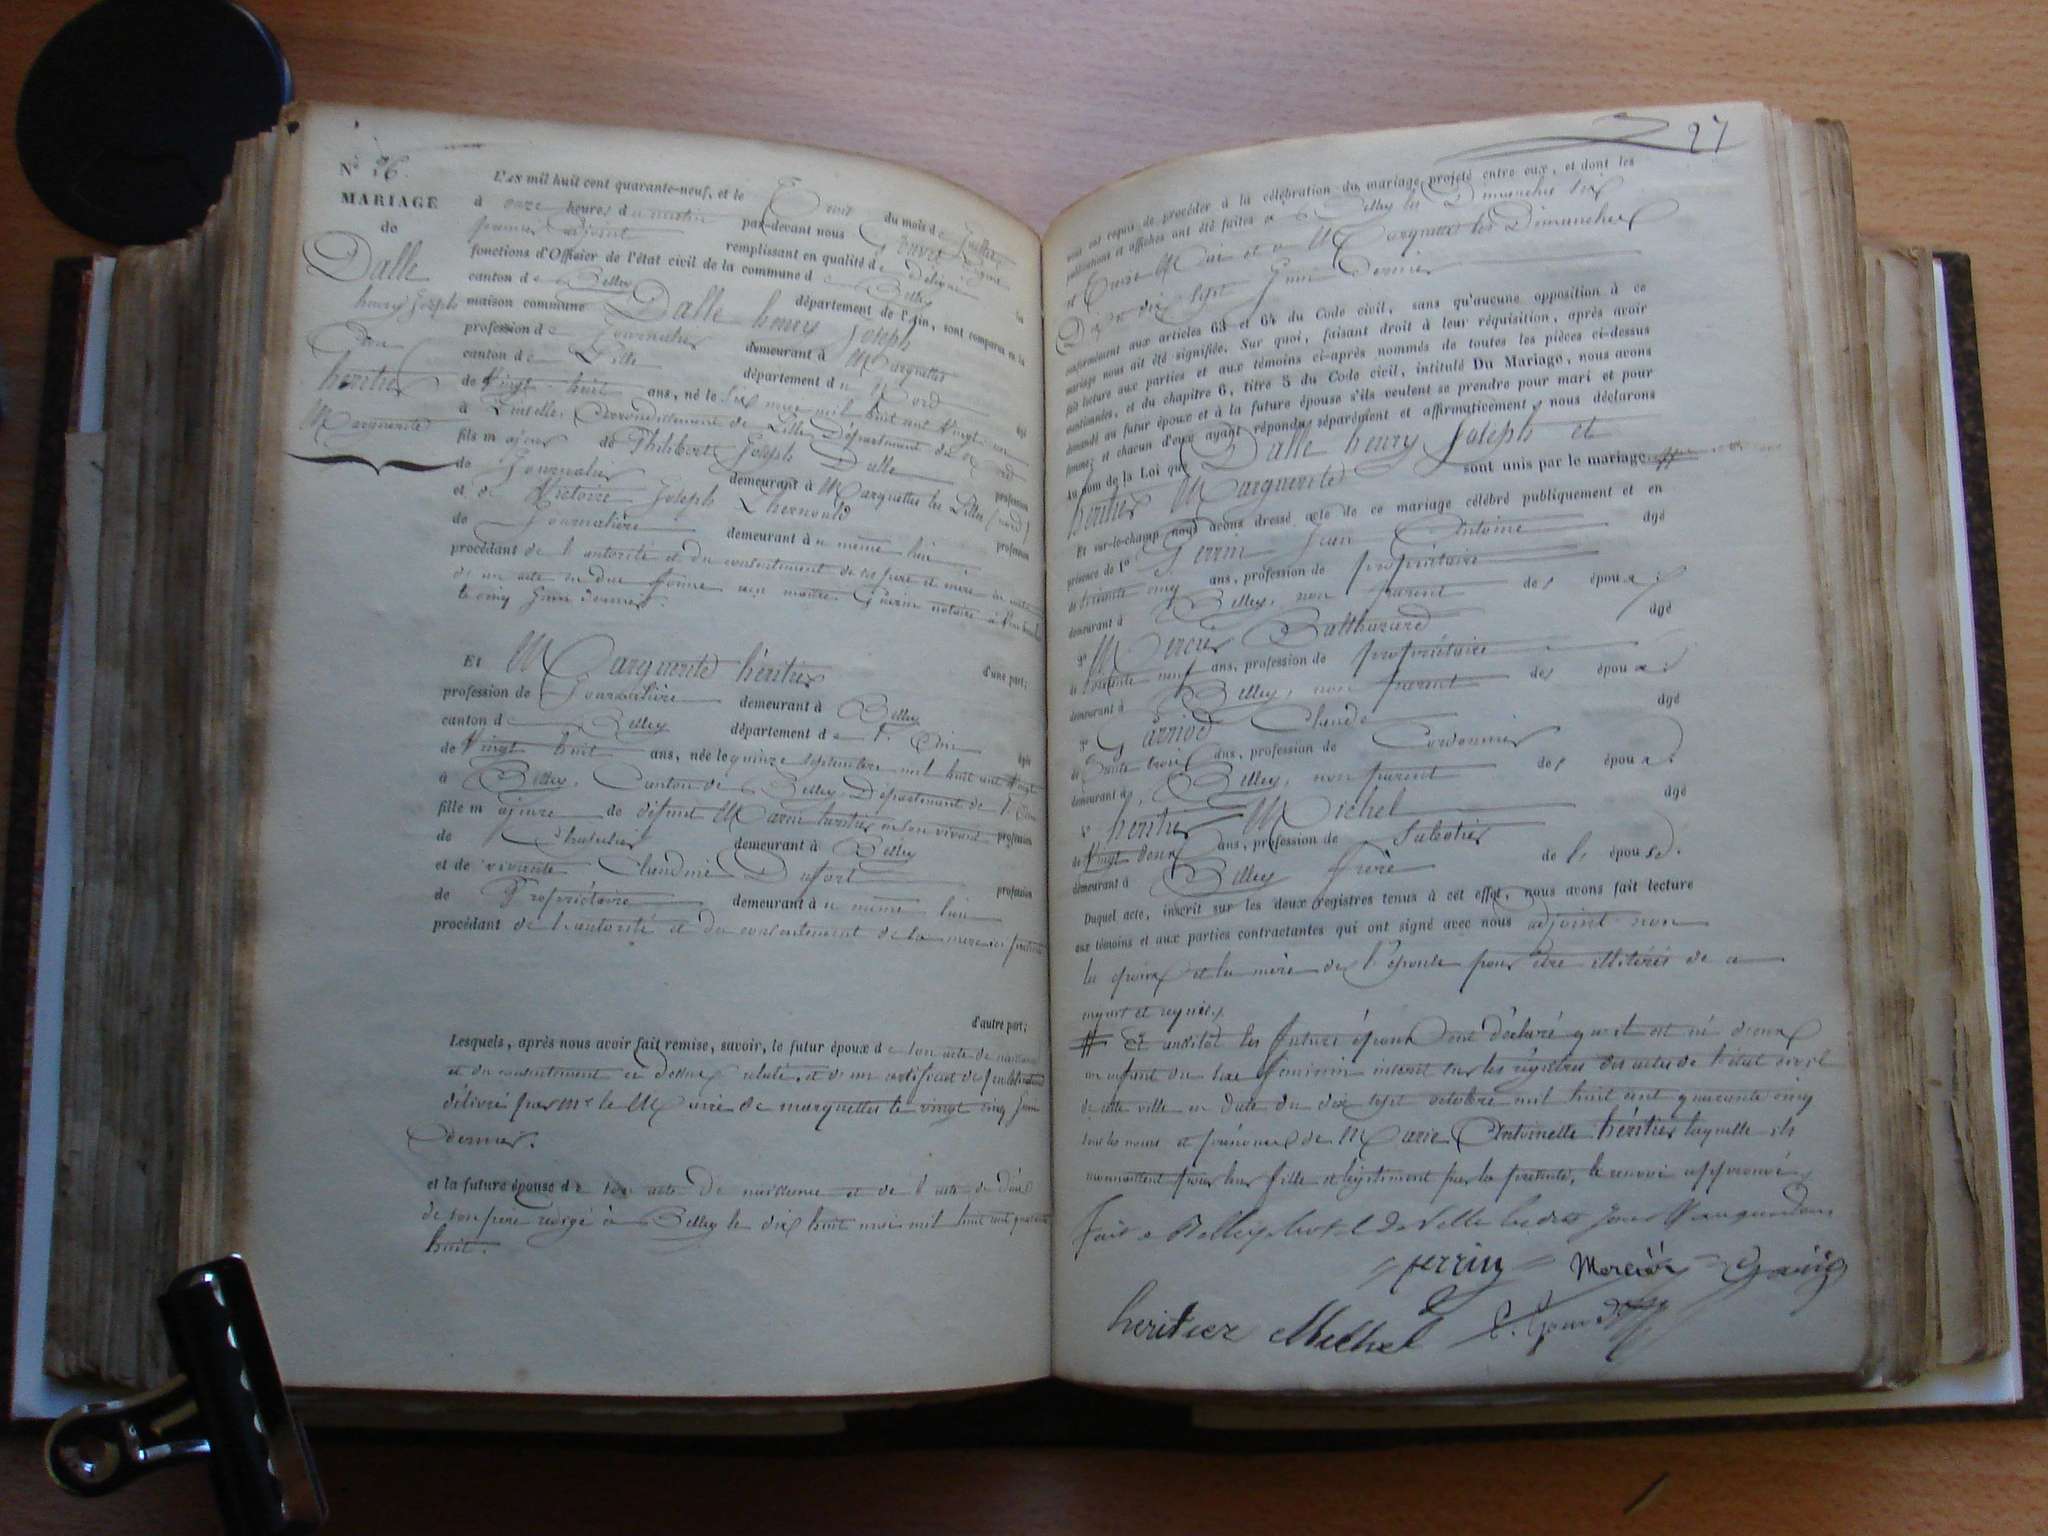 N° 26.
MARIAGE
de
Dalle
henry Joseph
héritier
Marguerite
L'AN mil huit cent quarante-neuf, et le Trois du mois de Juillet
à onze heures du matin par-devant nous
premier adjoint remplissant en qualité de délégué
fonctions d'Officier de l'état civil de la commune de Belley
canton de Belley département de l'Ain, sont comparus en la
maison commune Dalle henry Joseph
profession de Journalier demeurant à Marquette
canton de Lille département du Nord
de vingt-huit ans, né le six mars mil huit cent vingt-un
à Linselle, arrondissement de Lille Département du Nord
fils majeur de Philibert Joseph Dalle profession
de Journalier demeurant à Marquette les Lille (nord)
et de Victoire Joseph Lhernould profession
de Journalière demeurant au même lieu
procédant de l'autorité et du consentement de ses père et mère
le cinq Juin dernier.
d'une part;
Et Marguerite héritier
profession de Journalière demeurant à Belley
canton de Belley département de l'Ain âgée
de vingt huit ans, née le quinze septembre mil huit cent vingt
à Belley, Canton de Belley, Département de l'Ain
fille majeure de défunt Marin héritier en son vivant profession
de demeurant à Belley
et de vivante Claudine Dufort profession
de Propriétaire demeurant au même lieu
procédant de l'autorité et du consentement de la mère ici présente
d'autre part;
Lesquels, après nous avoir fait remise, savoir, le futur époux de son acte de naissance
et du consentement ci dessus relaté, et de un certificat de publications
délivré par mr le Maire de marquettes le vingt cinq Juin
dernier.
et la future épouse de son acte de naissance et de l'acte de décès
de son père rédigé à Belley le dix huit mai mil huit cent quarante
huit.
27
nous ont requis de procéder à la célébration du mariage projeté entre eux, et dont les
publications et affiches ont été faites à Belley les Dimanches dix
et Mai et à Marquette les Dimanches
Dix et dix sept Juin Dernier
conformément aux articles 63 et 64 du Code civil, sans qu'aucune opposition à ce
mariage nous ait été signifiée. Sur quoi, faisant droit à leur réquisition, après avoir
fait lecture aux parties et aux témoins ci-après nommés de toutes les pièces ci-dessus
mentionnées, et du chapitre 6, titre 5 du Code civil, intitulé Du Mariage, nous avons
demandé au futur époux et à la future épouse s'ils veulent se prendre pour mari et pour
femme; et chacun d'eux ayant répondu séparément et affirmativement, nous déclarons
au nom de la Loi que Dalle henry Joseph et
héritier Marguerite sont unis par le mariage
Et sur-le-champ nous avons dressé acte de ce mariage célébré publiquement et en
présence de 1° Perrin Jean Antoine âgé
de soixante cinq ans, profession de propriétaire
demeurant à Belley, non parent des époux;
2° Mercier Balthazard âgé
de soixante neuf ans, profession de propriétaire
demeurant à Belley, non parent des époux;
3° Claude âgé
de trente trois ans, profession de Cordonnier
demeurant à Belley, non parent des époux;
4° héritier Michel âgé
de vingt deux ans, profession de Sabotier
demeurant à Belley frère de l'épouse.
Duquel acte, inscrit sur les deux registres tenus à cet effet, nous avons fait lecture
aux témoins et aux parties contractantes qui ont signé avec nous adjoint non
les époux et la mère de l'épouse pour être illitérés de ce
enquis et requis.
# Et aussitôt les futurs époux ont déclaré qu'il est né d'eux
un enfant du sexe féminin inscrit sur les régistres des actes de l'état civil
de cette ville en date du dix sept octobre mil huit cent quarante cinq
sous les noms et prénoms de Marie Antoinette héritier laquelle ils
reconnaissent pour leur fille et légitiment par la présente, le renvoi approuvé
fait à Belley hotel de Ville les dits jour
perrin Mercier
heritier Michel